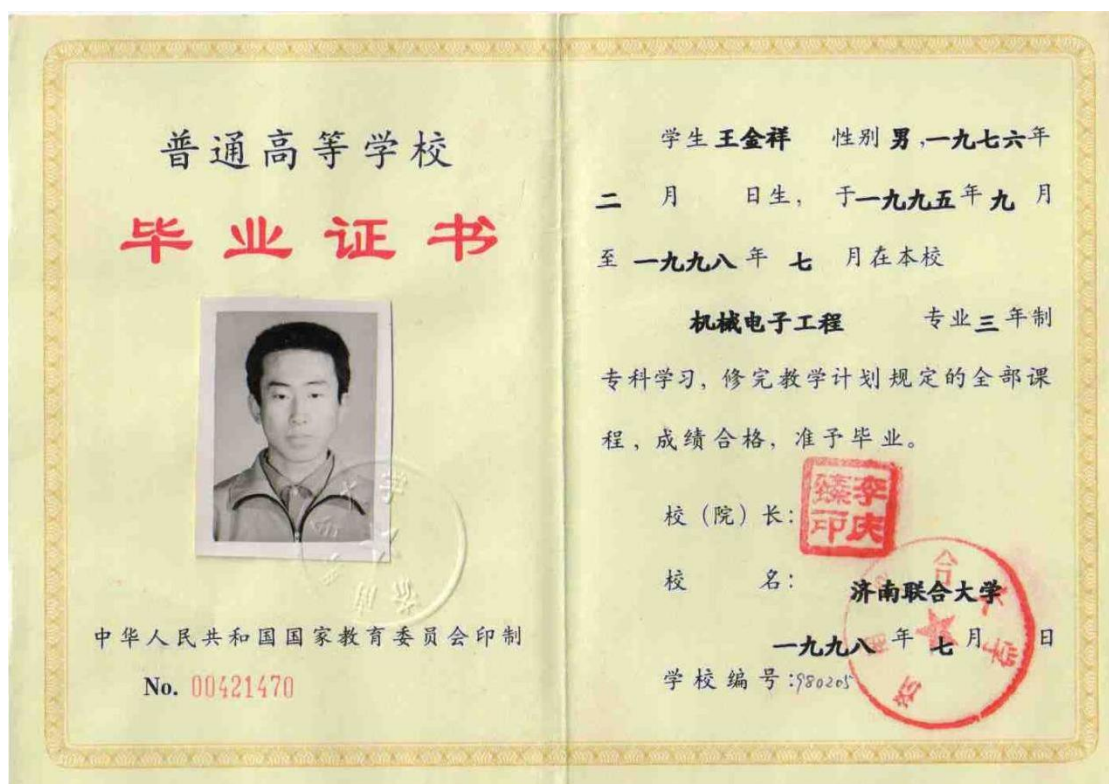 普通高等学校
毕业证书
中华人民共和国国家教育委员会印制
No. 00421470
学生 王金祥 性别 男,一九七六年
二 月 日生, 于一九九五年九 月
至 一九九八 年 七 月在本校
机械电子工程 专业三年制
专科学习, 修完教学计划规定的全部课
程, 成绩合格, 准予毕业。
校(院)长:
李庆臻印
校 名: 济南联合大学
一九九八 年 七月 日
学校编号:980205